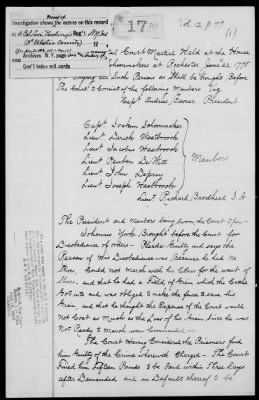 Proof of
Investigation shows the names on this record
Vol. 12 p. 77
17
(1)
Archives N.Y. vol.
Gov't Index mil. cards
Court Martial Held at the House
Schoonmakers at Rochester June 22 1778
Such Persons as Shall be brought Before
The Court Consist of the following Members Viz
Capt Andries Bevier President
Capt Jochem Schoonmaker
Lieut Derick Westbrook
Lieut Jacobus Hasbrouck
Lieut Reuben DeWitt
Lieut John Depuy
Lieut Joseph Hasbrouck
Members
Lieut Richard Brodhead J. A
The President and Members being Sworn the Court Open
Johannis York, Brought before the Court for
Disobedance of orders – Pleads Guilty and says the
Reason of His Disobedance was Because he Had no
Shoe, Could not March with his Other for the want of
Shoes, and that he had a Field of Grain which the Cattle
Got into and was obliged to make the fence to save his
Grain, and that he thought the Expence of the Court would
not Cost as much as the Loss of his Grain since he was
Not Ready to March when Commanded –
The Court Having Considered the Prisoners find
him Guilty of the Crime wherewith Charged – The Court
Fined him Fifteen Pounds to be Paid within Three Days
after Demanded and in Default thereof to be